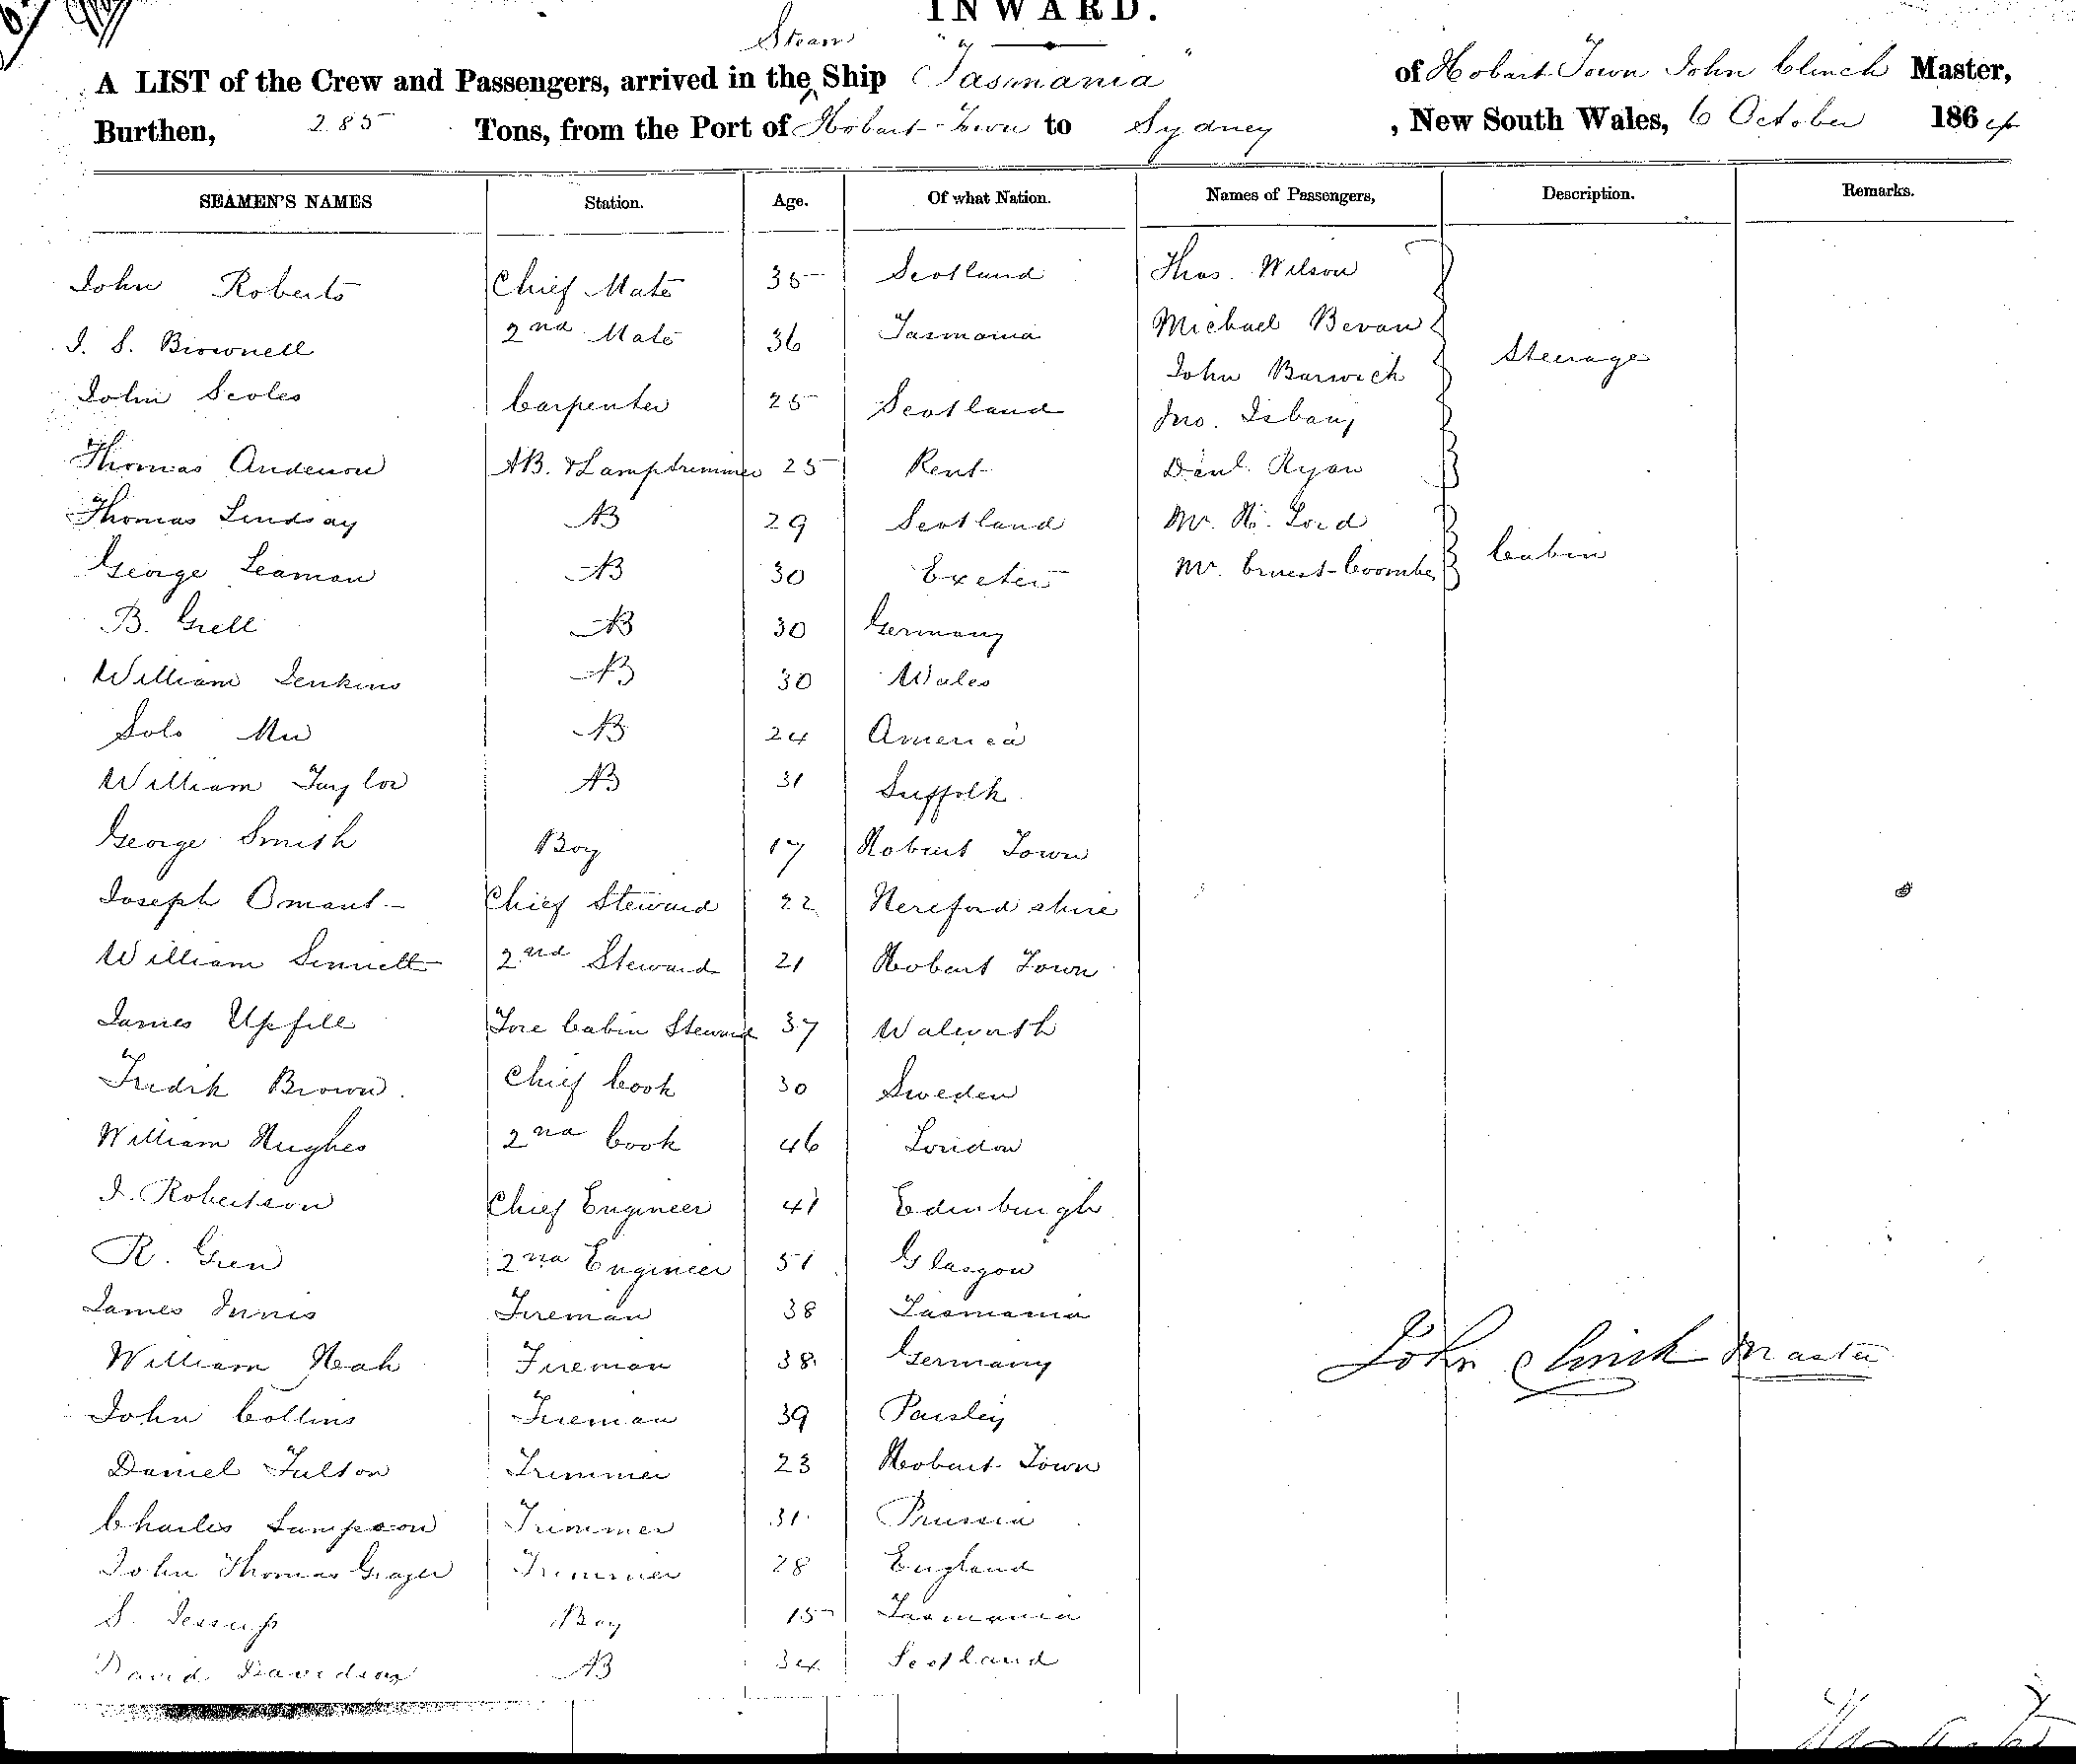 INWARD.
Steam
A LIST of the Crew and Passengers, arrived in the Ship "Tasmania" of Hobart Town John Clinch Master,
Burthen, 285 Tons, from the Port of Hobart Town to Sydney, New South Wales, 6 October 1864
SEAMEN'S NAMES Station. Age. Of what Nation. Names of Passengers, Description. Remarks.
John Roberts Chief Mate 35 Scotland Thos. Wilson
J. S. Brownell 2nd Mate 36 Tasmania Michael Bevan
John Barwick Steerage
John Scoles Carpenter 25 Scotland Jno.
Thomas Anderson AB. & Lamptrimmer 25 Kent Danl. Ryan
Thomas Lindsay AB 29 Scotland Mr. H. Lord
George Leaman AB 30 Exeter Mr. Ernest Coombe Cabin
B. Grell AB 30 Germany
William Jenkins AB 30 Wales
Solo AB 24 America
William Taylor AB 31 Suffolk
George Smith Boy 17 Hobart Town
Joseph Omant Chief Steward 22 Herefordshire
William Sennett 2nd Steward 21 Hobart Town
James Upfill Fore Cabin Steward 37 Walworth
Fredrk Brown. Chief Cook 30 Sweden
William Hughes 2nd Cook 46 London
J. Robertson Chief Engineer 41 Edinburgh
R. Green 2nd Engineer 51 Glasgow
James Innis Fireman 38 Tasmania
William Heah Fireman 38 Germany John Clinch Master
John Collins Fireman 39 Paisley
Daniel Fulton Trimmer 23 Hobart Town
Charles Sampson Trimmer 31 Prussia
John Thomas Trimmer 28 England
S. Jessup Boy 15 Tasmania
David Davidson AB 34 Scotland